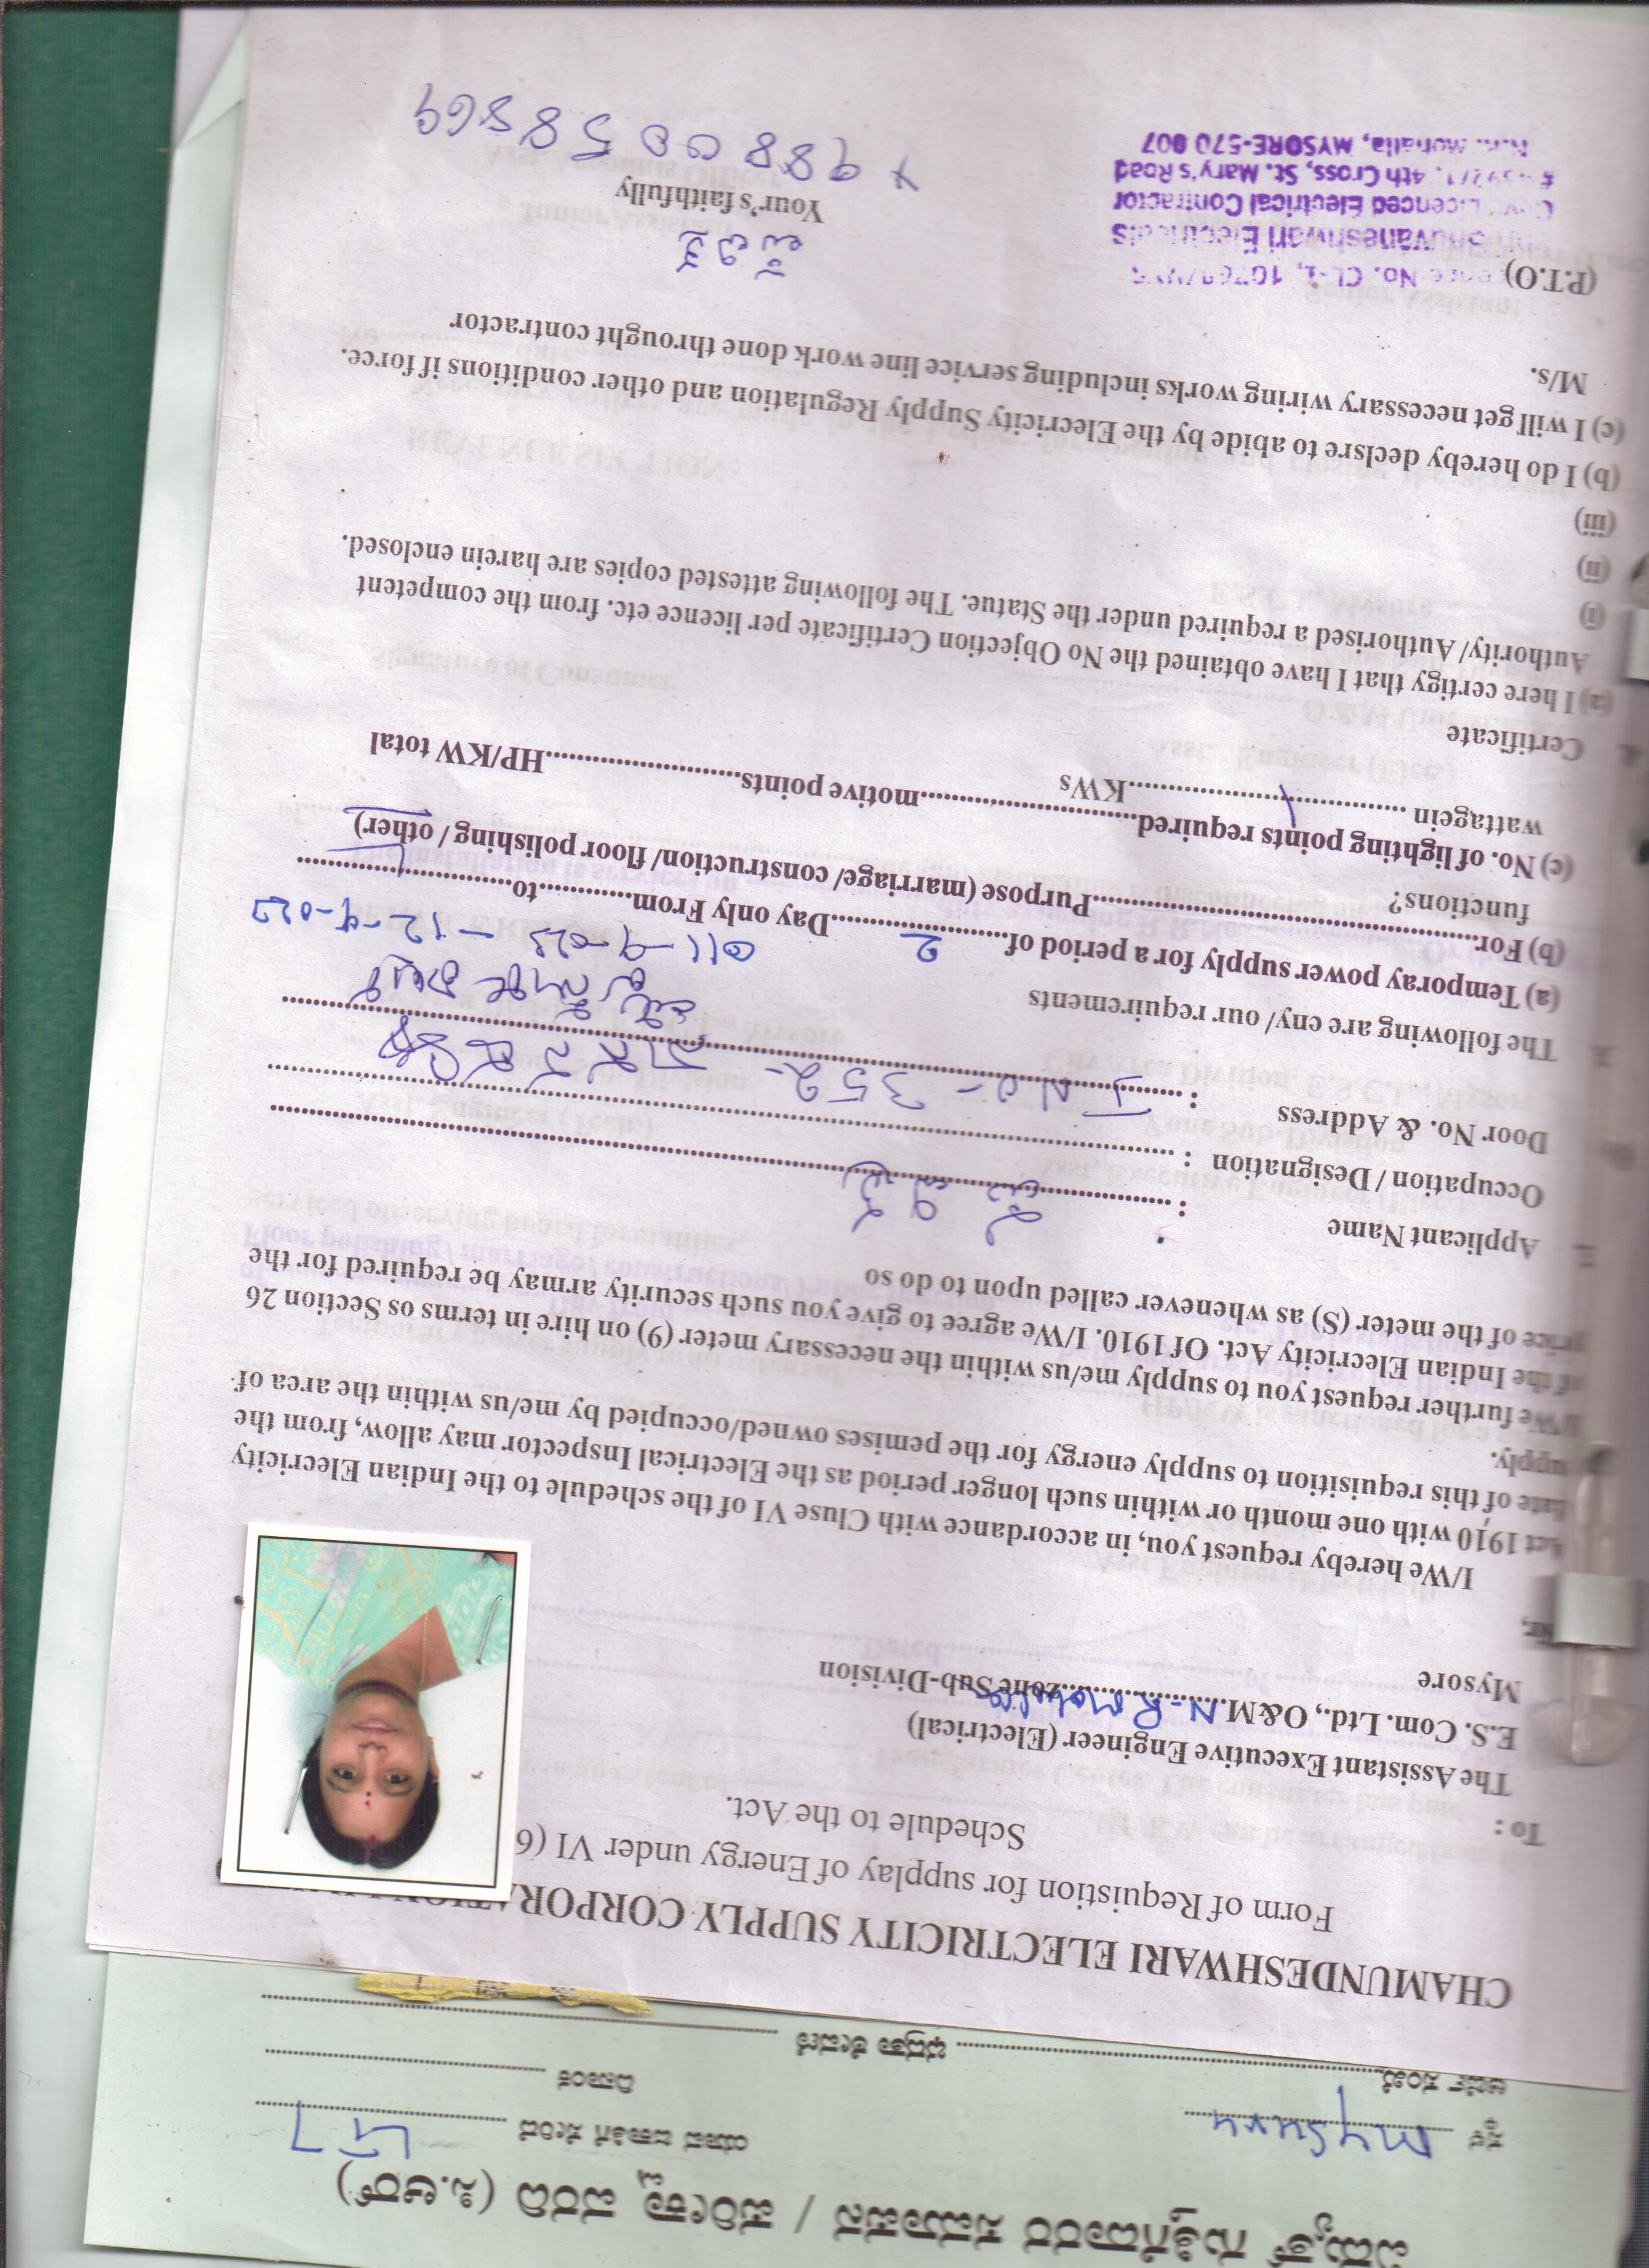 ವಿದ್ಯುತ್ ಗುತ್ತಿಗೆದಾರರ ಸಮಾಪನ / ಪರೀಕ್ಷಾ ವರದಿ (ಸಿ.ಆರ್)
ಸ್ಥಳ Mysuru ಯಾವ ಜಾತಿಗೆ ಸೇರಿದ LT7
ಅರ್ಜಿ ಸಂಖ್ಯೆ ದಿನಾಂಕ
ಭದ್ರತಾ ಠೇವಣಿ
CHAMUNDESHWARI ELECTRICITY SUPPLY CORPORATION
Form of Requistion for supplay of Energy under VI (6
Schedule to the Act.
To :
The Assistant Executive Engineer (Electrical)
E.S. Com. Ltd., O&M N-R mohalla Zone Sub-Division
Mysore
Sir,
I/We hereby request you, in accordance with Cluse VI of the schedule to the Indian Elecricity
Act 1910 with one month or within such longer period as the Electrical Inspector may allow, from the
date of this requisition to supply energy for the pemises owned/occupied by me/us within the area of
supply.
I/We further request you to supply me/us within the necessary meter (9) on hire in terms os Section 26
of the Indian Elecricity Act. Of 1910. I/We agree to give you such security armay be required for the
price of the meter (S) as whenever called upon to do so
Applicant Name :
Occupation / Designation :
Door No. & Address : No - 352-
The following are eny/ our requirements
(a) Temporay power supply for a period of 2 Day only From to 11-9-023 - 12-9-023
(b) For Purpose (marriage/ construction/ floor polishing / other)
functions?
(c) No. of lighting points required motive points HP/KW total
wattagein 1 KWs
Certificate
(a) I here certigy that I have obtained the No Objection Certificate per licence etc. from the competent
Authority/ Authorised a required under the Statue. The following attested copies are harein enclosed.
(i)
(ii)
(iii)
(b) I do hereby declsre to abide by the Elecricity Supply Regulation and other conditions if force.
(c) I will get necessary wiring works including service line work done throught contractor
M/s.
(P.T.O)
No. CL-1, 10768/MYS
Bhuvaneshwari Electricals
Licenced Electrical Contractor
4th Cross, St. Mary's Road
N.R. Mohalla, MYSORE-570 007
Your's faithfully
9880058869